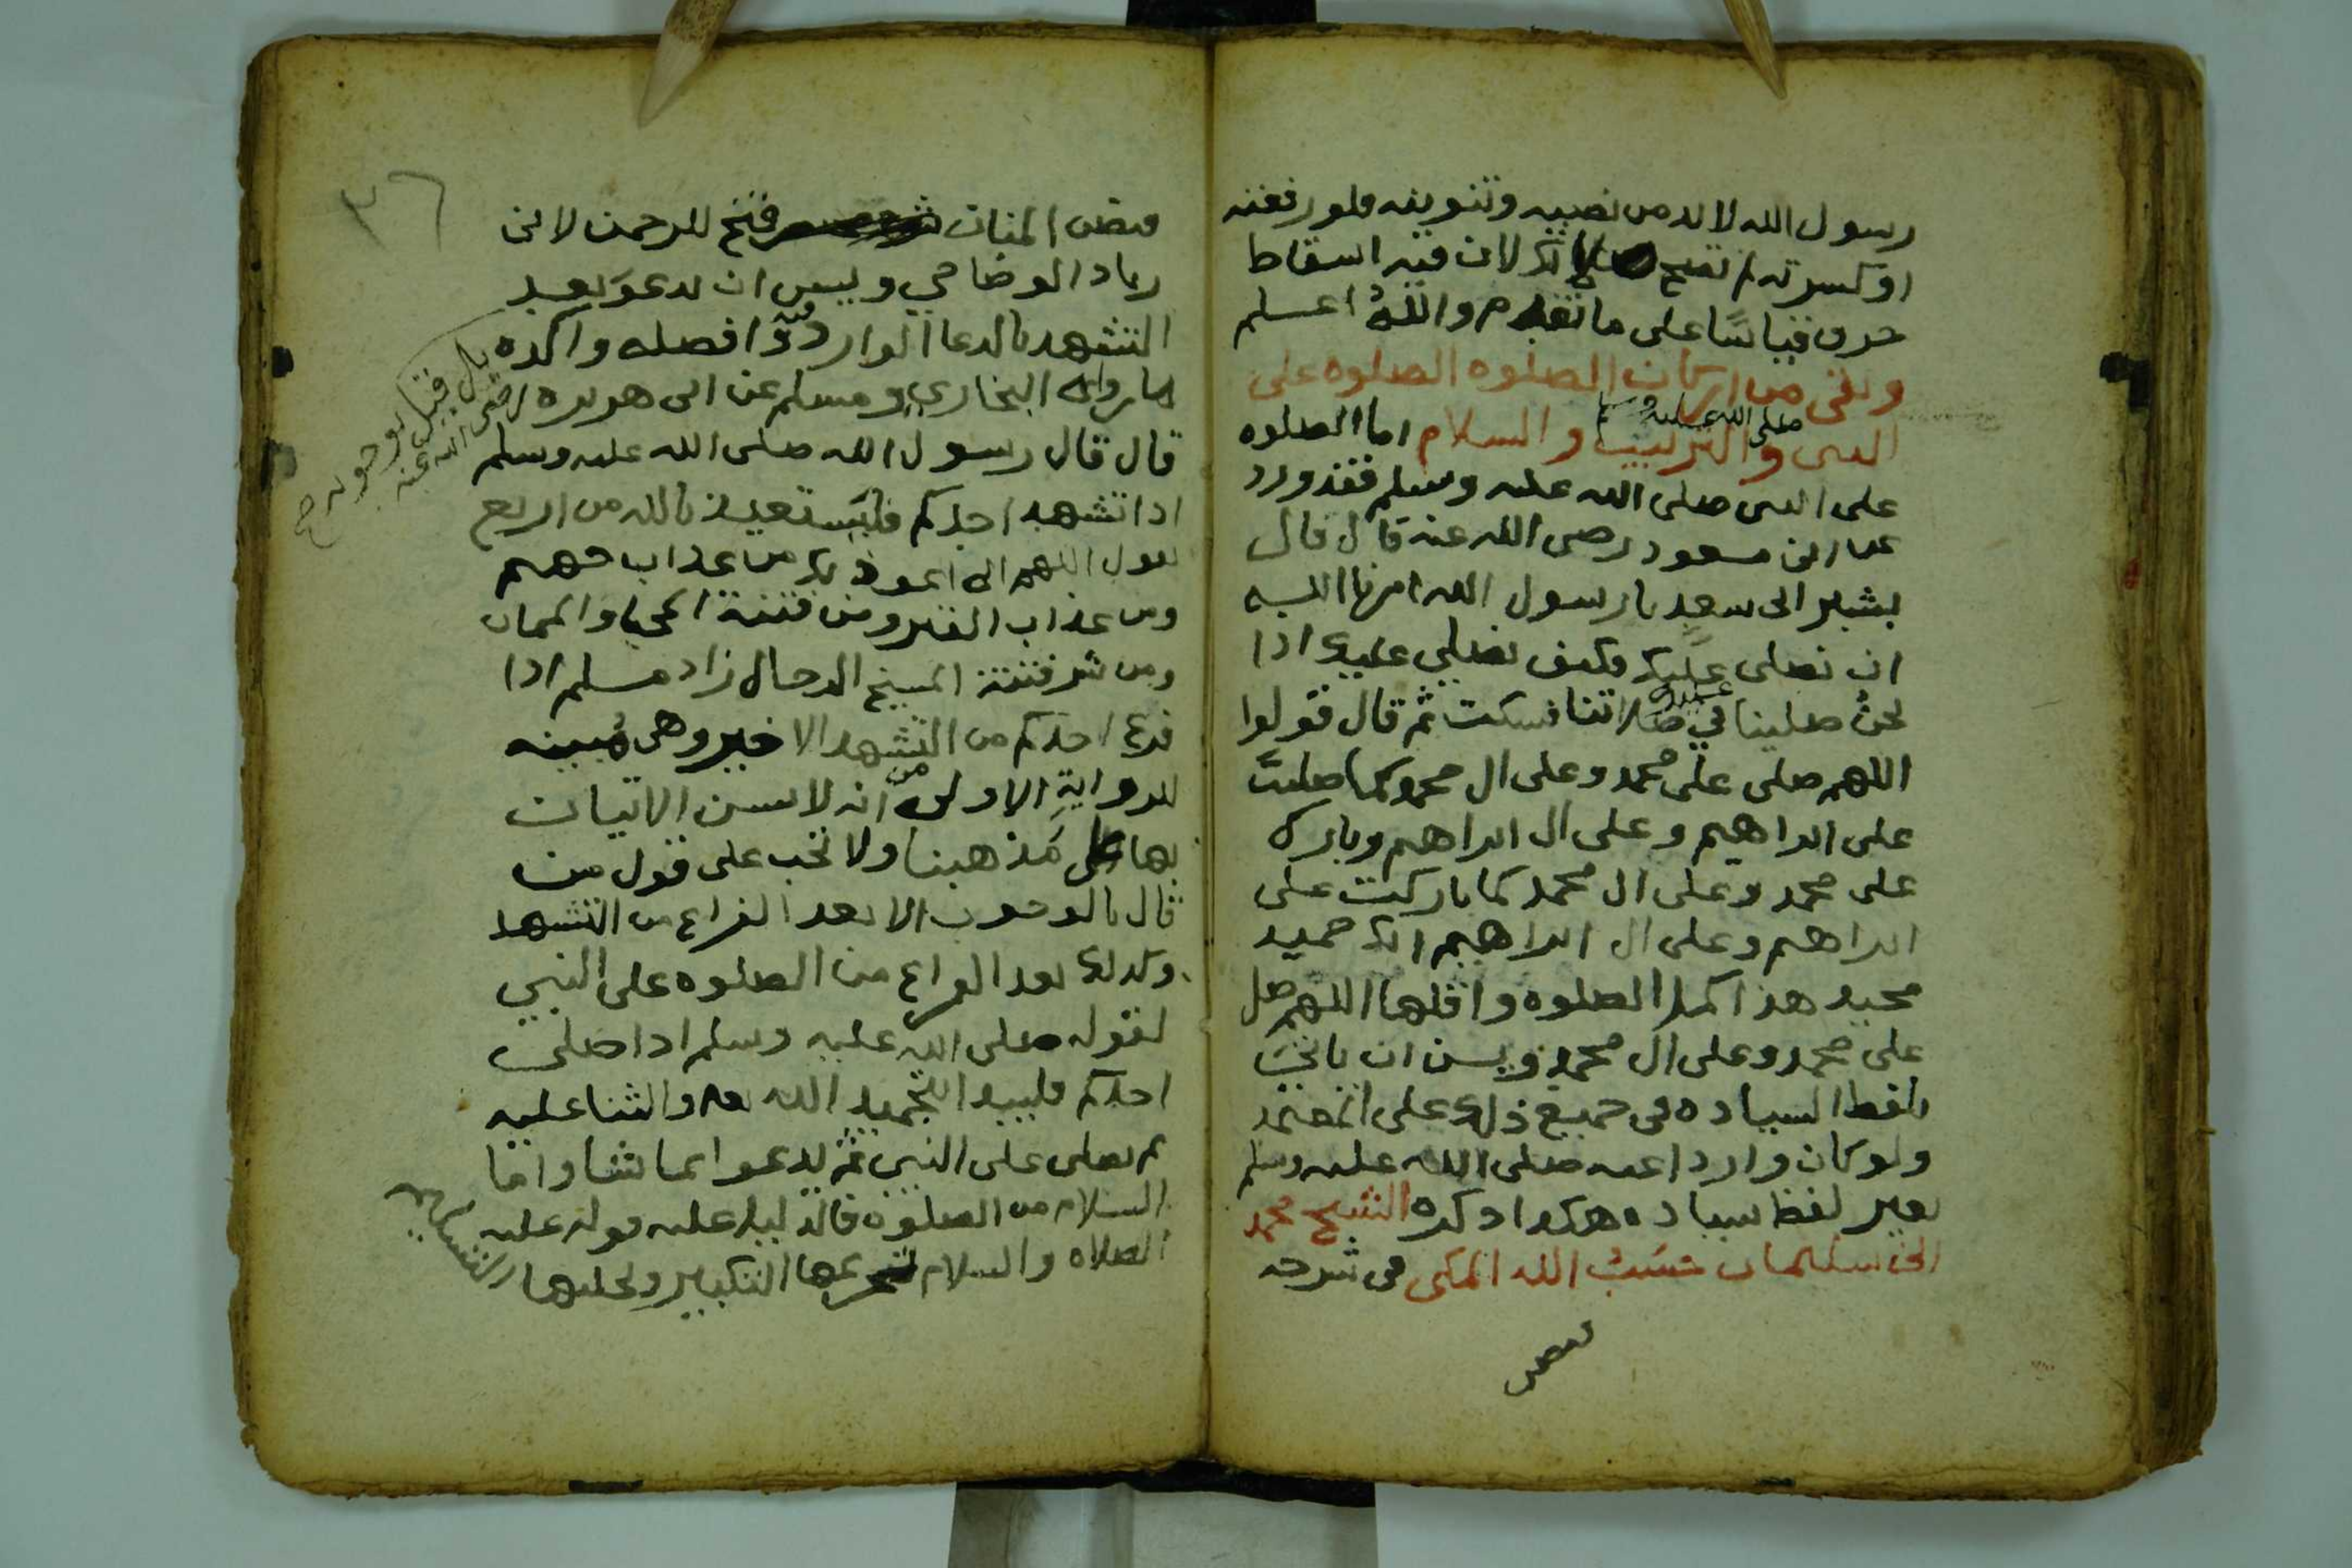 رسول الله لابد من نصبه وتنوينه فلو رفعته
او كسرته لم تصح لان فيه اسقاط
حرف قياسًا على ما تقدم والله اعلم
وبقى من اركان الصلوه الصلوه على
النبى صلى الله عليه وسلم والترتيب والسلام اما الصلوه
على النبى صلى الله عليه وسلم فقد ورد
عن ابن مسعود رضى الله عنه قال قال
بشير ابن سعد يا رسول الله امرنا الله
ان نصلى عليك فكيف نصلي عليك اذا
نحن صلينا عليك في صلاتنا فسكت ثم قال قولوا
اللهم صلى على محمد وعلى ال محمد كما صليت
على ابراهيم وعلى ال ابراهيم وبارك
على محمد وعلى ال محمد كما باركت على
ابراهيم وعلى ال ابراهيم انك حميد
مجيد هذا اكمل الصلوه واقلها اللهم صل
على محمد وعلى ال محمد ويسن ان ياتي
بلفظ السياده في جميع ذلك على المعتمد
ولو كان واردا عنه صلى الله عليه وسلم
بغير لفظ سياده هكذا ذكره الشيخ محمد
ابن سليمان حسَبُ الله المكي في شرحه
٣٦
فيض المنان فتح الرحمن لابن
زياد الوضاحي ويسن ان يدعو بعد
التشهد بالدعا الوارد فيه وافضله واكده
ما رواه البخاري ومسلم عن ابى هريره رضى الله عنه
بل قيل بوجوبه صح
قال قال رسول الله صلى الله عليه وسلم
اذا تشهد احدكم فليستعيذ بالله من اربع
يقول اللهم انى اعوذ بك من عذاب جهنم
ومن عذاب القبر ومن فتنة المحيا والممات
ومن شر فتنة المسيح الدجال زاد مسلم اذا
فرغ احدكم من التشهد الاخير وهى مُبينه
للرواية الاولى من انه لا يسن الاتيان
بها على مذهبنا ولا تجب على قول من
قال بالوجوب الا بعد الفراغ من التشهد
وكذلك بعد الفراغ من الصلوه على النبي
لقوله صلى الله عليه وسلم اذا صلى
احدكم فليبدا بتحميد الله والثنا عليه
ثم يصلى على النبي ثم ليدعو بما شا واما
السلام من الصلوه فالدليل عليه قوله عليه
الصلاه والسلام تحريمها التكبير وتحليلها